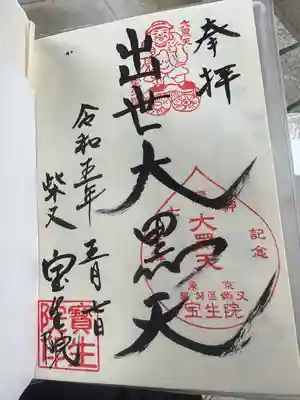 奉拝
大黒天
出世大黒天
令和五年
柴又 宝生院
記念
大黒天
東京
葛飾区柴又
宝生院
寶生院